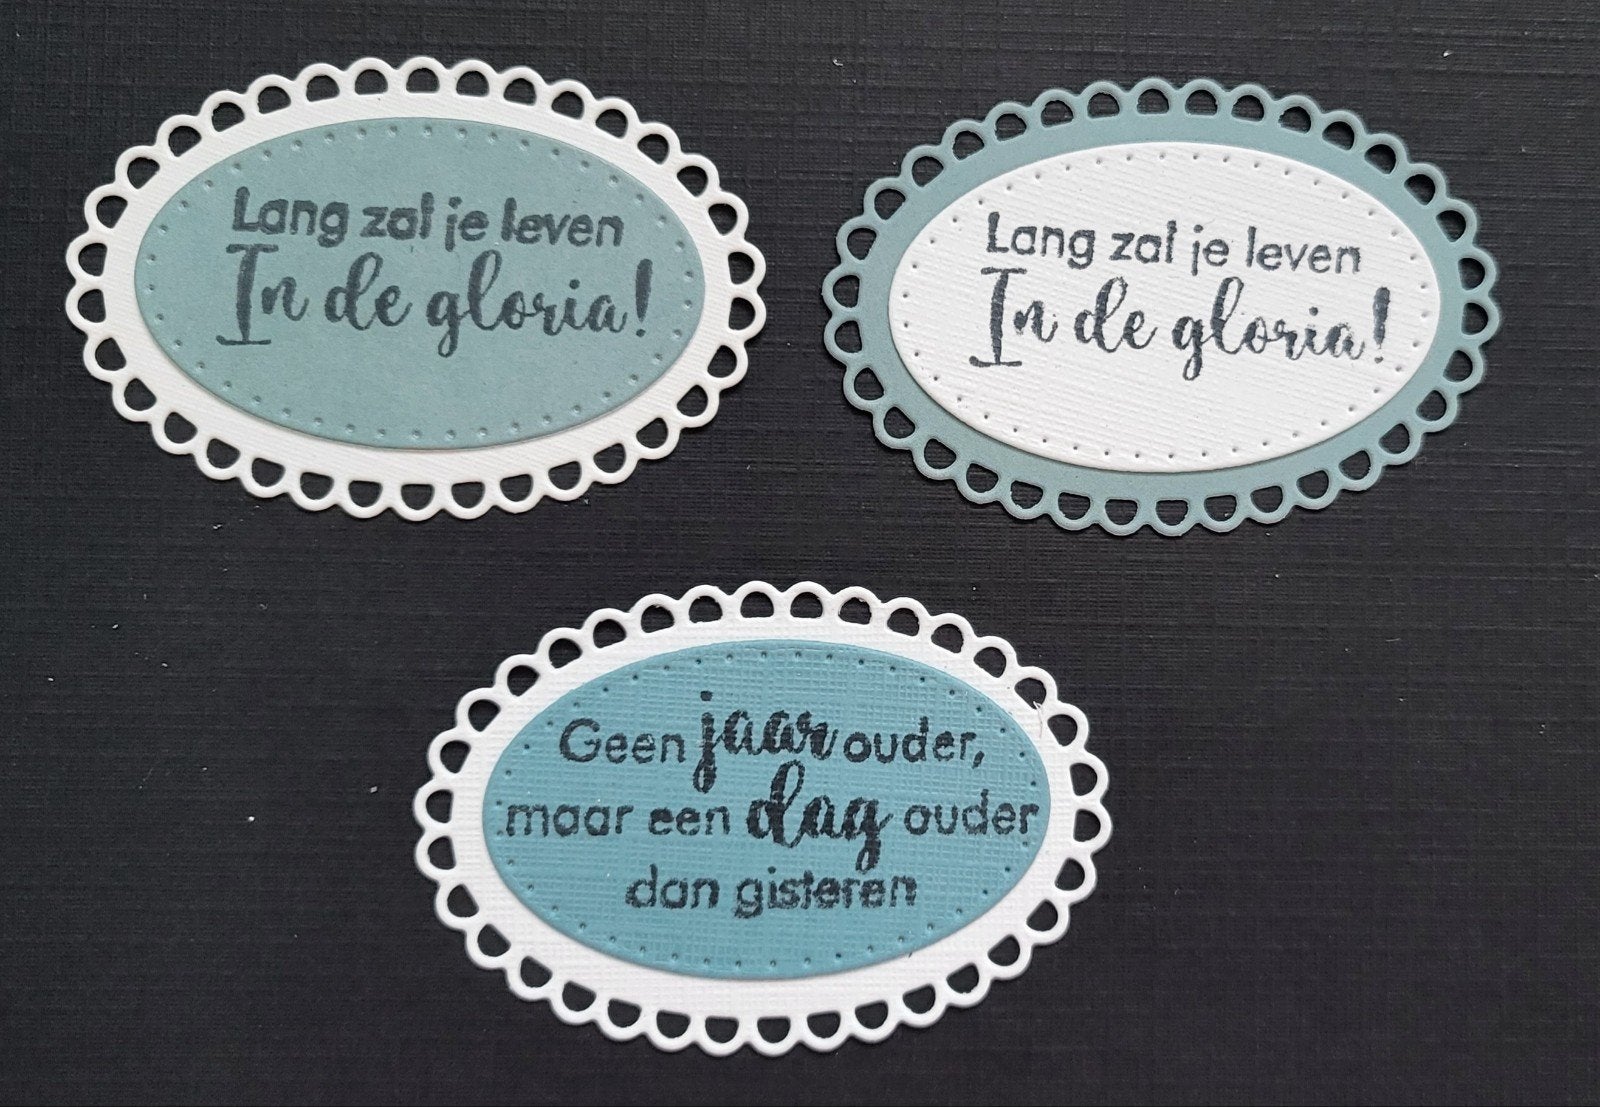 Lang zal je leven
In de gloria!
Lang zal je leven
In de gloria!
Geen jaar ouder,
maar een dag ouder
dan gisteren